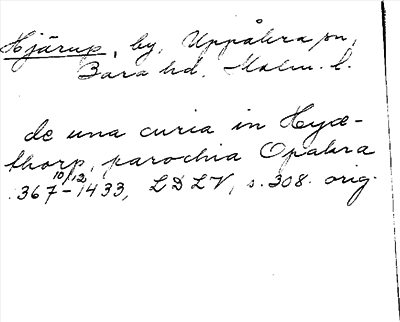 Hjärup, by, Uppåkra sn,
Bara hd, Malm. l.
de una curia in Hyæ-
thorp, parochia Opakra
1367 10/12 - 1433, LDLV, s. 308. orig.